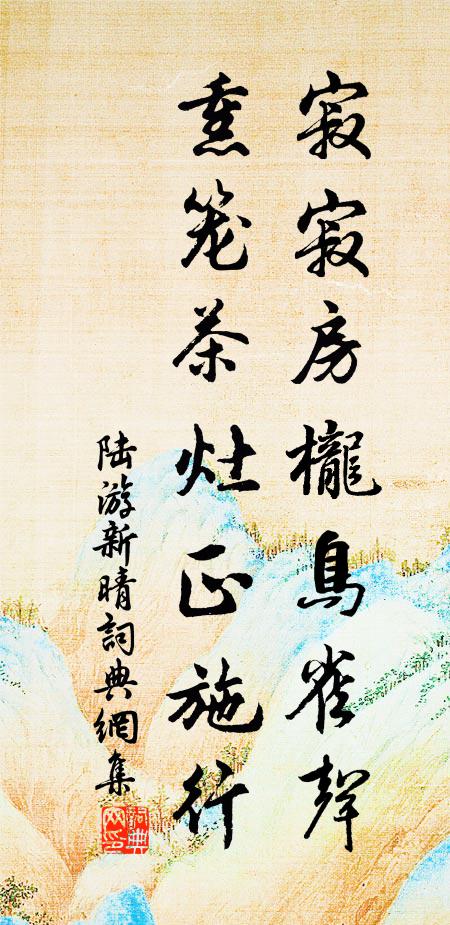 寂寂房櫳鳥雀聲
熏笼茶灶正施行
陆游新晴詞典網集
詞典网印